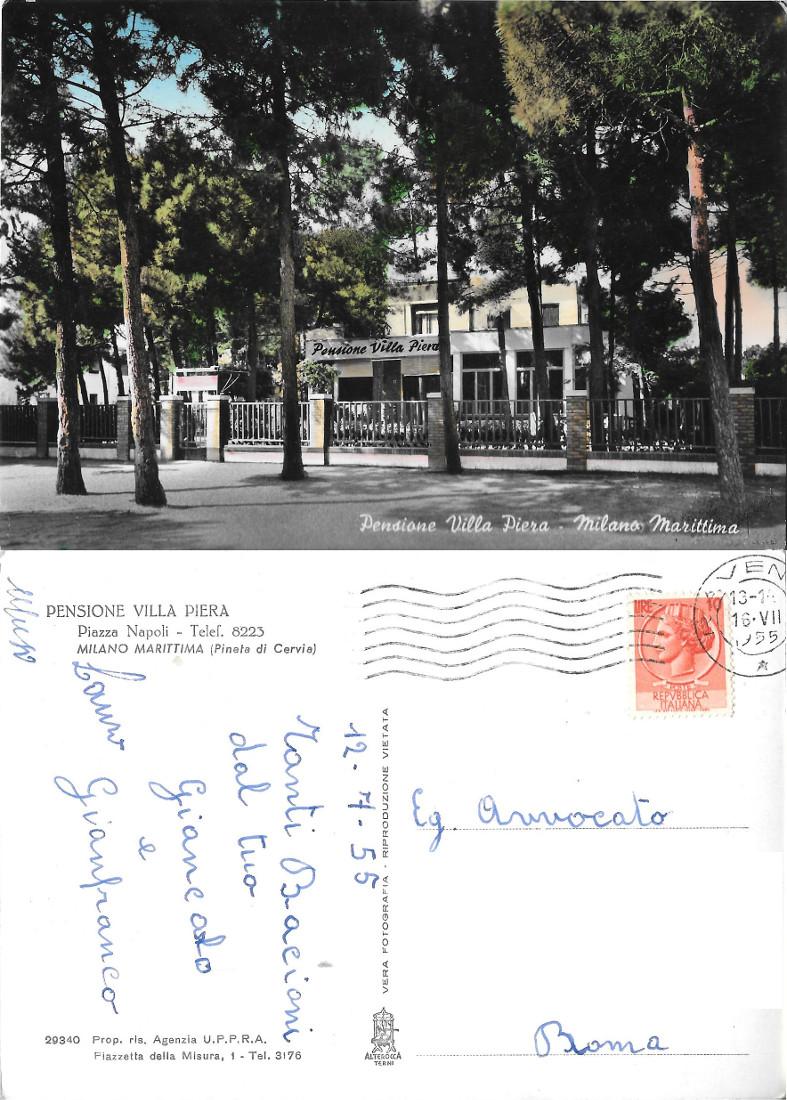 Pensione Villa Piera
Pensione Villa Piera - Milano Marittima
PENSIONE VILLA PIERA
Piazza Napoli - Telef. 8223
MILANO MARITTIMA (Pineta di Cervia)
12-7-55
Tanti Bacioni
dal tuo
Giancarlo
e
Gianfranco
Lauro
VERA FOTOGRAFIA - RIPRODUZIONE VIETATA
VEN
13-1
16·VII
1955
LIRE 10
POSTE
REPVBBLICA
ITALIANA
Eg. Avvocato
Roma
29340 Prop. ris. Agenzia U.P.P.R.A.
Piazzetta della Misura, 1 - Tel. 3176
ALTEROCCA
TERNI